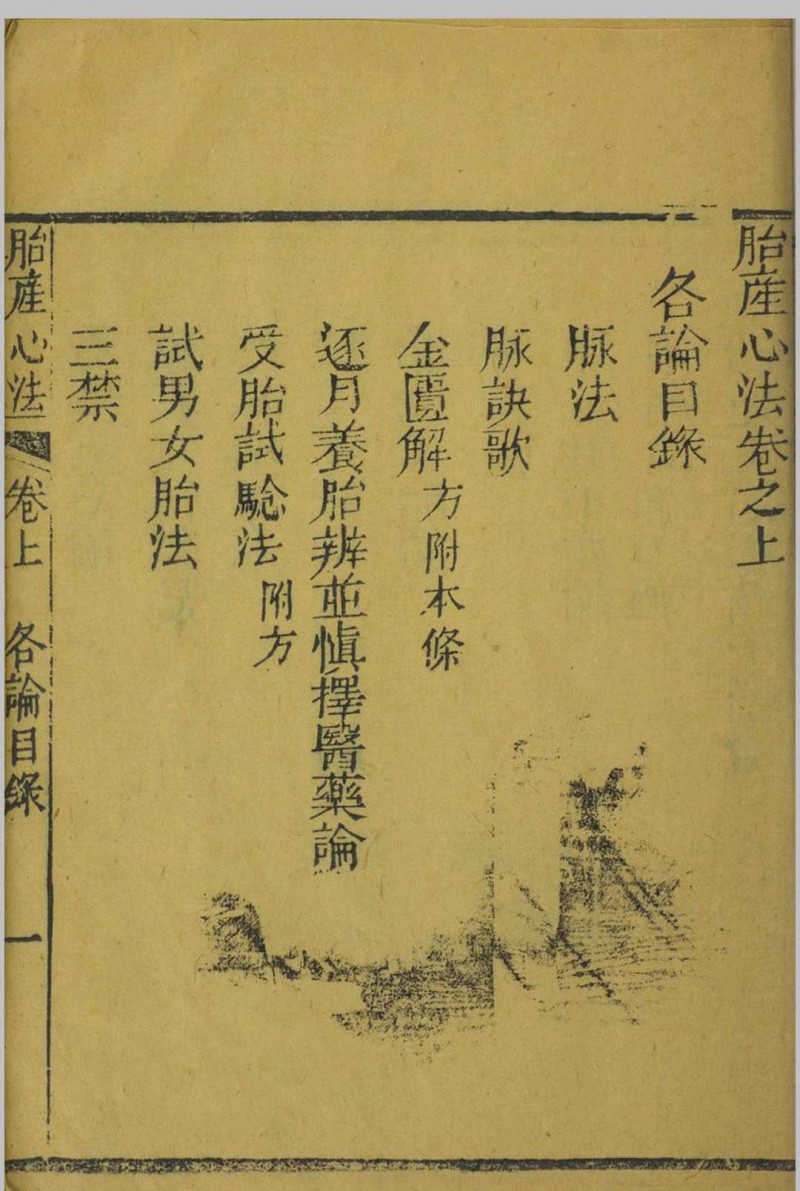 胎產心法卷之上
各論目錄
脉法
脉訣歌
金匱解 方附本條
逐月養胎辨並慎擇醫藥論
受胎試驗法 附方
試男女胎法
三禁
胎產心法 卷上 各論目錄 一